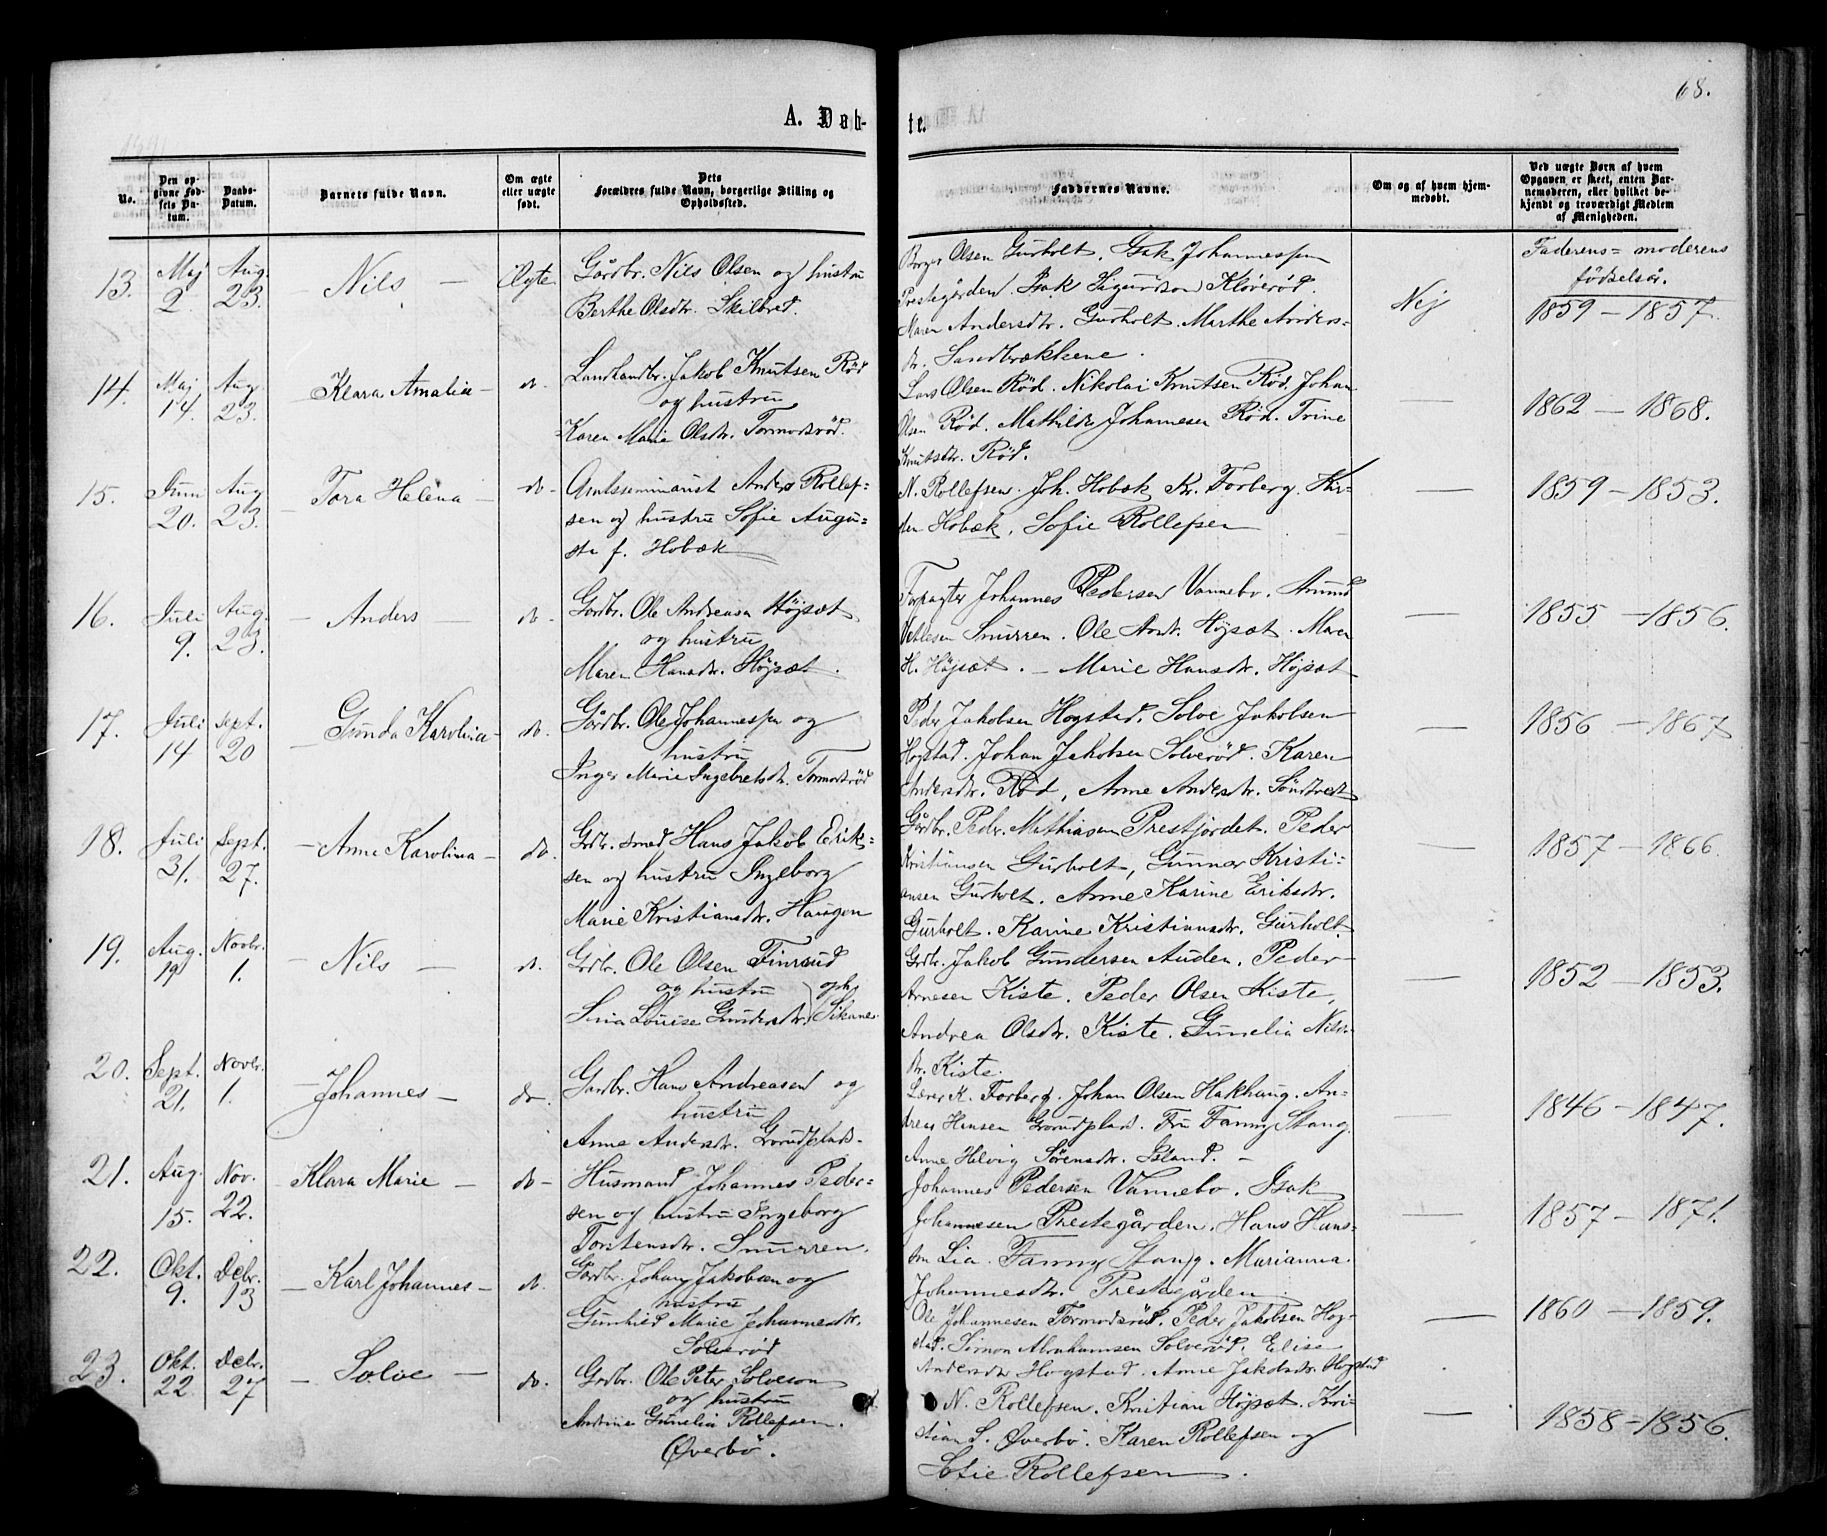 68.
A. Døb-
te.
No.
Den op-
givne Fød-
sels Da-
tum.
Daabs-
Datum.
Barnets fulde Navn.
Om ægte
eller uægte
født.
Dets
Forældres fulde Navn, borgerlige Stilling og
Opholdssted.
Faddernes Navne.
Om og af hvem hjem-
medøbt.
Ved uægte Børn af hvem
Opgaven er skeet, enten Bar-
nemoderen, eller hvilket be-
kjendt og troværdigt Medlem
af Menigheden.
Faderens - moderens
fødselsår.
13. Maj 2. Aug. 23. Nils — Ægte
Gårdbr. Nils Olsen og hustru
Berthe Olsdtr. Skilbred.
Borger Olsen Gurholt. Isak Johannessen
Prestegården. Isak Sigurdson Kløverød.
Maren Andersdtr. Gurholt. Marthe Anders-
dtr. Sandbrækkene.
Nej
1859 — 1857.
14. Maj 14. Aug. 23. Klara Amalia — do.
Landhandlr. Jakob Knutsen Rød
og hustru
Karen Marie Olsdtr. Tormodsrød.
Lars Olsen Rød. Nikolai Knutsen Rød. Johan
Olsen Rød. Mathilde Johannesen Rød. Trine
Knutsdtr. Rød.
—
1862 — 1868.
15. Juni 20. Aug 23. Tora Helena — do —
Amtsseminarist Anders Rollef-
sen og hustru Sofie Augu-
sta f. Hobæk
N. Rollefsen. Joh. Hobæk Kr. Forberg. Kir-
den Hobæk. Sofie Rollefsen
—
1859 — 1853.
16. Juli 9. Aug. 23. — Anders — do.
Gårdbr. Ole Andreasen Højsæt
og hustru
Maren Hansdtr. Højsæt.
Forpagter Johannes Pedersen Vannebo. Amund
Snurren. Ole Andr. Højsæt. Maren
H. Højsæt. — Marie Hansdtr. Højsæt
—
1855 — 1856.
17. Juli 14 Sept. 20 — Gunda Karolina — do.
Gårdbr. Ole Johannessen og
hustru
Inger Marie Ingebretsdtr. Tormodsrød
Peder Jakobsen Hogstad. Solve Jakobsen
Hogstad. Johan Jakobsen Solverød. Karen
Andersdtr. Rød, Anne Andersdtr. Søndtvedt
—
1856 — 1867
18. Juli 31. Sept. 27. — Anne Karolina — do.
Grdbr. smed Hans Jakob Erik-
sen og hustru Ingeborg
Marie Kristiansdtr. Haugen
Gårdbr. Pedr. Mathiasen Prestjordet. Peder
Kristiansen Gurholt, Gunner Kristi-
ansen Gurholt. Anne Karine Eriksdtr.
Gurholt. Karine Kristiansdtr. Gurholt.
—
1857 — 1866.
19. Aug. 19 Novbr. 1. — Nils — do.
Grdbr. Ole Olsen Finsrud
og hustru oph.
Sina Louise Gundersdtr. Sikane
Grdbr. Jakob Gundersen Auden. Peder
Arnesen Kiste. Peder Olsen Kiste,
Andrea Olsdtr. Kiste. Gunelia Nils-
dtr. Kiste.
—
1852 — 1853.
20. Sept. 21. Novbr. 1. — Johannes — do.
Gardbr. Hans Andreasen og
hustru
Anne Andersdtr. Grorudplads-
Lærer K. Forberg. Johan Olsen Hakhaug. An-
dreas Hansen Grorudplads. Fru Fanny Stang.
Anne Helvig Sørensdtr. Island. —
1846 — 1847.
21. Aug. 15. Nov. 22. — Klara Marie — do —
Husmand Johannes Peder-
sen og hustru Ingeborg
Torstensdtr. Snurren.
Johannes Pedersen Vannebo. Isak
Johannesen Prestegården. Hans Hans-
sen Lia. Fanny Stang. Marianna
Johannesdtr. Prestegården.
—
1857 — 1871.
22. Okt. 9. Debr. 13 — Karl Johannes — do.
Gårdbr. Johan Jakobsen og
hustru
Gunhild Marie Johannesdtr.
Solverød
Ole Johannesen Tormodsrød. Peder Jakobsen Hog-
stad. Simon Abrahamsen Solverød. Elise
Andersdtr Hogstad. Anne Jakobsdtr. Hogstad
—
1860 — 1859.
23. Okt. 22. Debr. 27 — Solve — do.
Grdbr. Ole Peter Solveson
og hustru
Andrine Gunelia Rollefsen.
Øverbø.
N. Rollefsen. Kristian Højsæt. Kri-
stian S. Øverbø. Karen Rollefsen og
Sofie Rollefsen.
—
1858 — 1856.